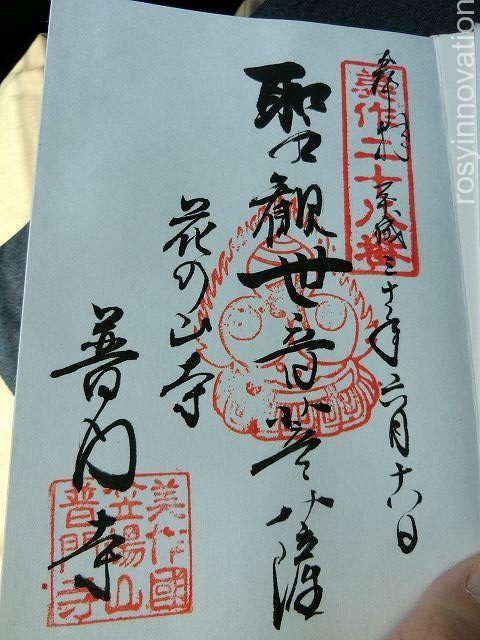 奉拝 平成三十年六月十六日
美作二十八番
聖観世音菩薩
花の山寺
普門寺
美作國
笠場山
普門寺
rosyinnovation